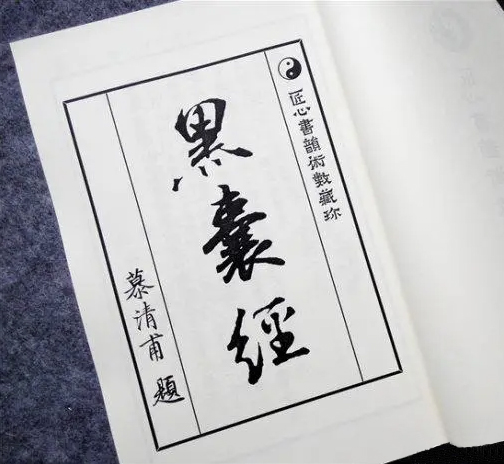 匠心書韻術數藏珍
黑囊經
慕清甫 題